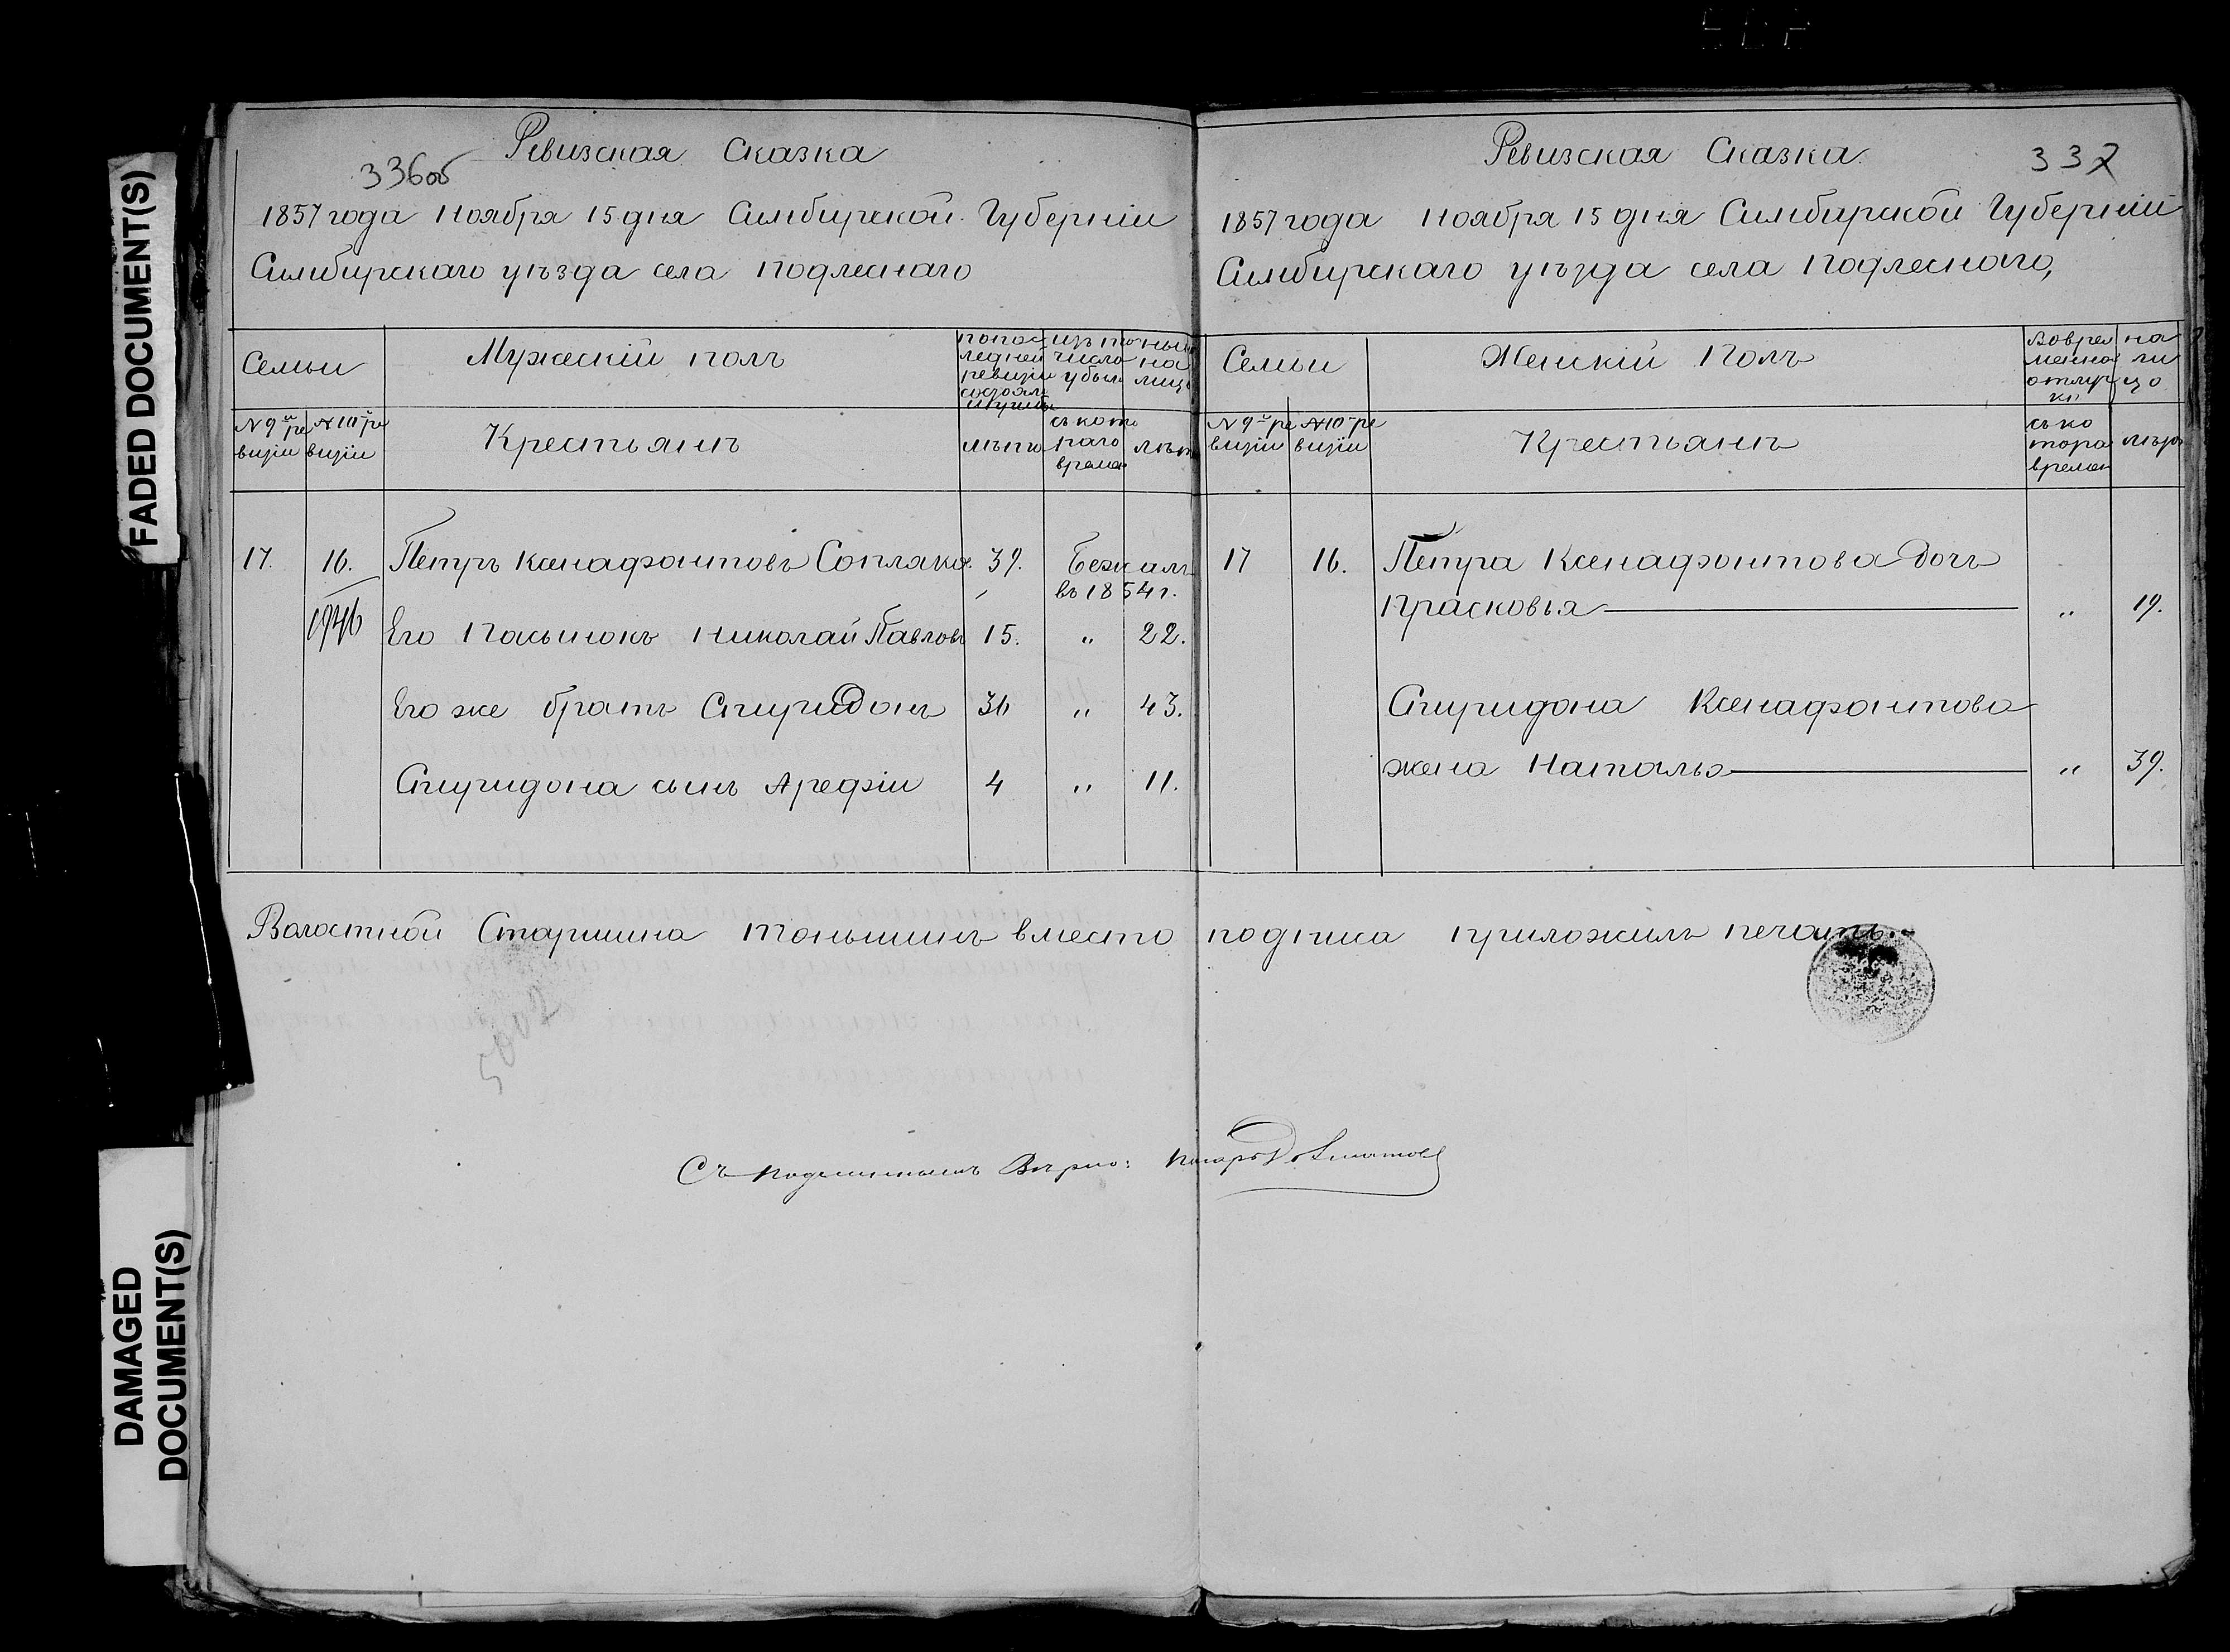 FADED DOCUMENT(S)
DAMAGED
DOCUMENT(S)
336об
Ревизская Сказка
1857 года Ноября 15 дня Симбирской Губернии
Симбирскаго уѣзда села Подлеснаго
Семьи
Мужескій полъ
попос
ледней
ревизіи
состоял
изъ то
число
убыло
ны
на
лицо
N 9й ре
визіи
N 10й ре
визіи
Крестьянъ
лѣта
съ кото
раго
време
лѣт
17. 16. Петръ Ксенафонтовъ Сопляко 39. Бежалъ
въ 1854 г.
Его Пасынокъ Николай Павловъ 15. " 22.
Его же братъ Спиридонъ 36 " 43.
Спиридона сынъ Арефій 4 " 11.
337
Ревизская Сказка
1857 года Ноября 15 дня Симбирской Губерніи
Симбирскаго уѣзда села Подлеснаго,
Семьи
Женскій Полъ
Вовре
менно
отлуч
ки
на
ли
цо
N 9й ре
визіи
N 10й ре
визіи
Крестьянъ
съ ко
тора
времен
лѣта
17 16. Петра Ксенафонтова дочь
Прасковья " 19.
Спиридона Ксенафонтова
жена Наталья " 39.
Волостной Старшина Тоньшинъ вместо подписа приложилъ печать.
5002
Съ подлиннымъ Верно: Писарь